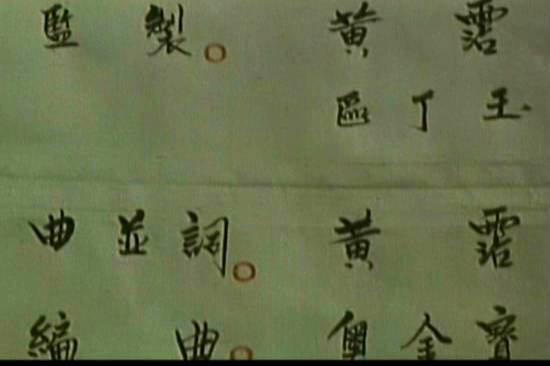 監製。黃霑
區丁玉
曲並詞。黃霑
編曲。奧金寶